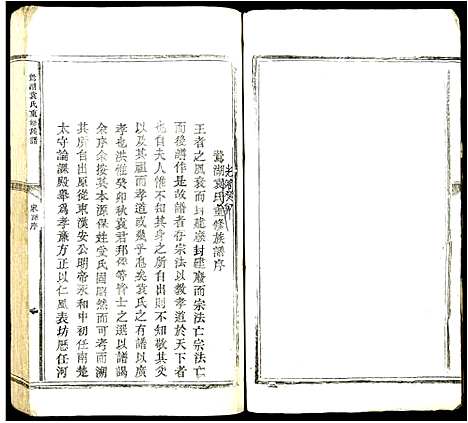 鶯湖袁氏重修族譜序
王者之風衰而封建廢封建廢而宗法亡宗法亡
而後譜作是故譜者存宗法以教孝道於天下者
也自夫人惟不知其身之所自出則不知敬其父
以及其祖而孝道或幾乎息矣袁氏之有譜以廣
孝也洪惟癸卯秋袁君邦
等皆士之選以譜謁
余序余按其本源保姓受氏固瞭然而可考而溯
其所自出原從東漢安公明帝永和中初任南楚
太守論課殿舉為孝廉方正以仁風表坊歷任河
鶯湖袁氏重修族譜
序